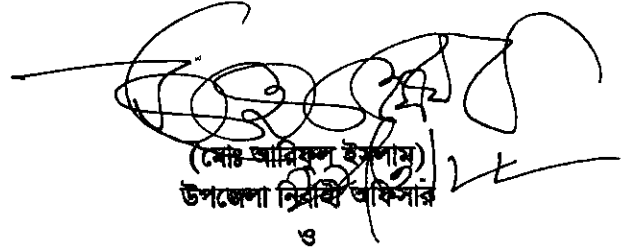 (মোঃ আরিফুল ইসলাম)
উপজেলা নির্বাহী অফিসার
ও